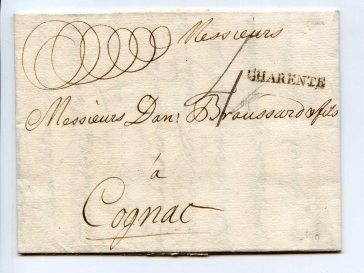 Messieurs
4
CHARENTE
Messieurs Dan: Broussard & fils
à
Cognac